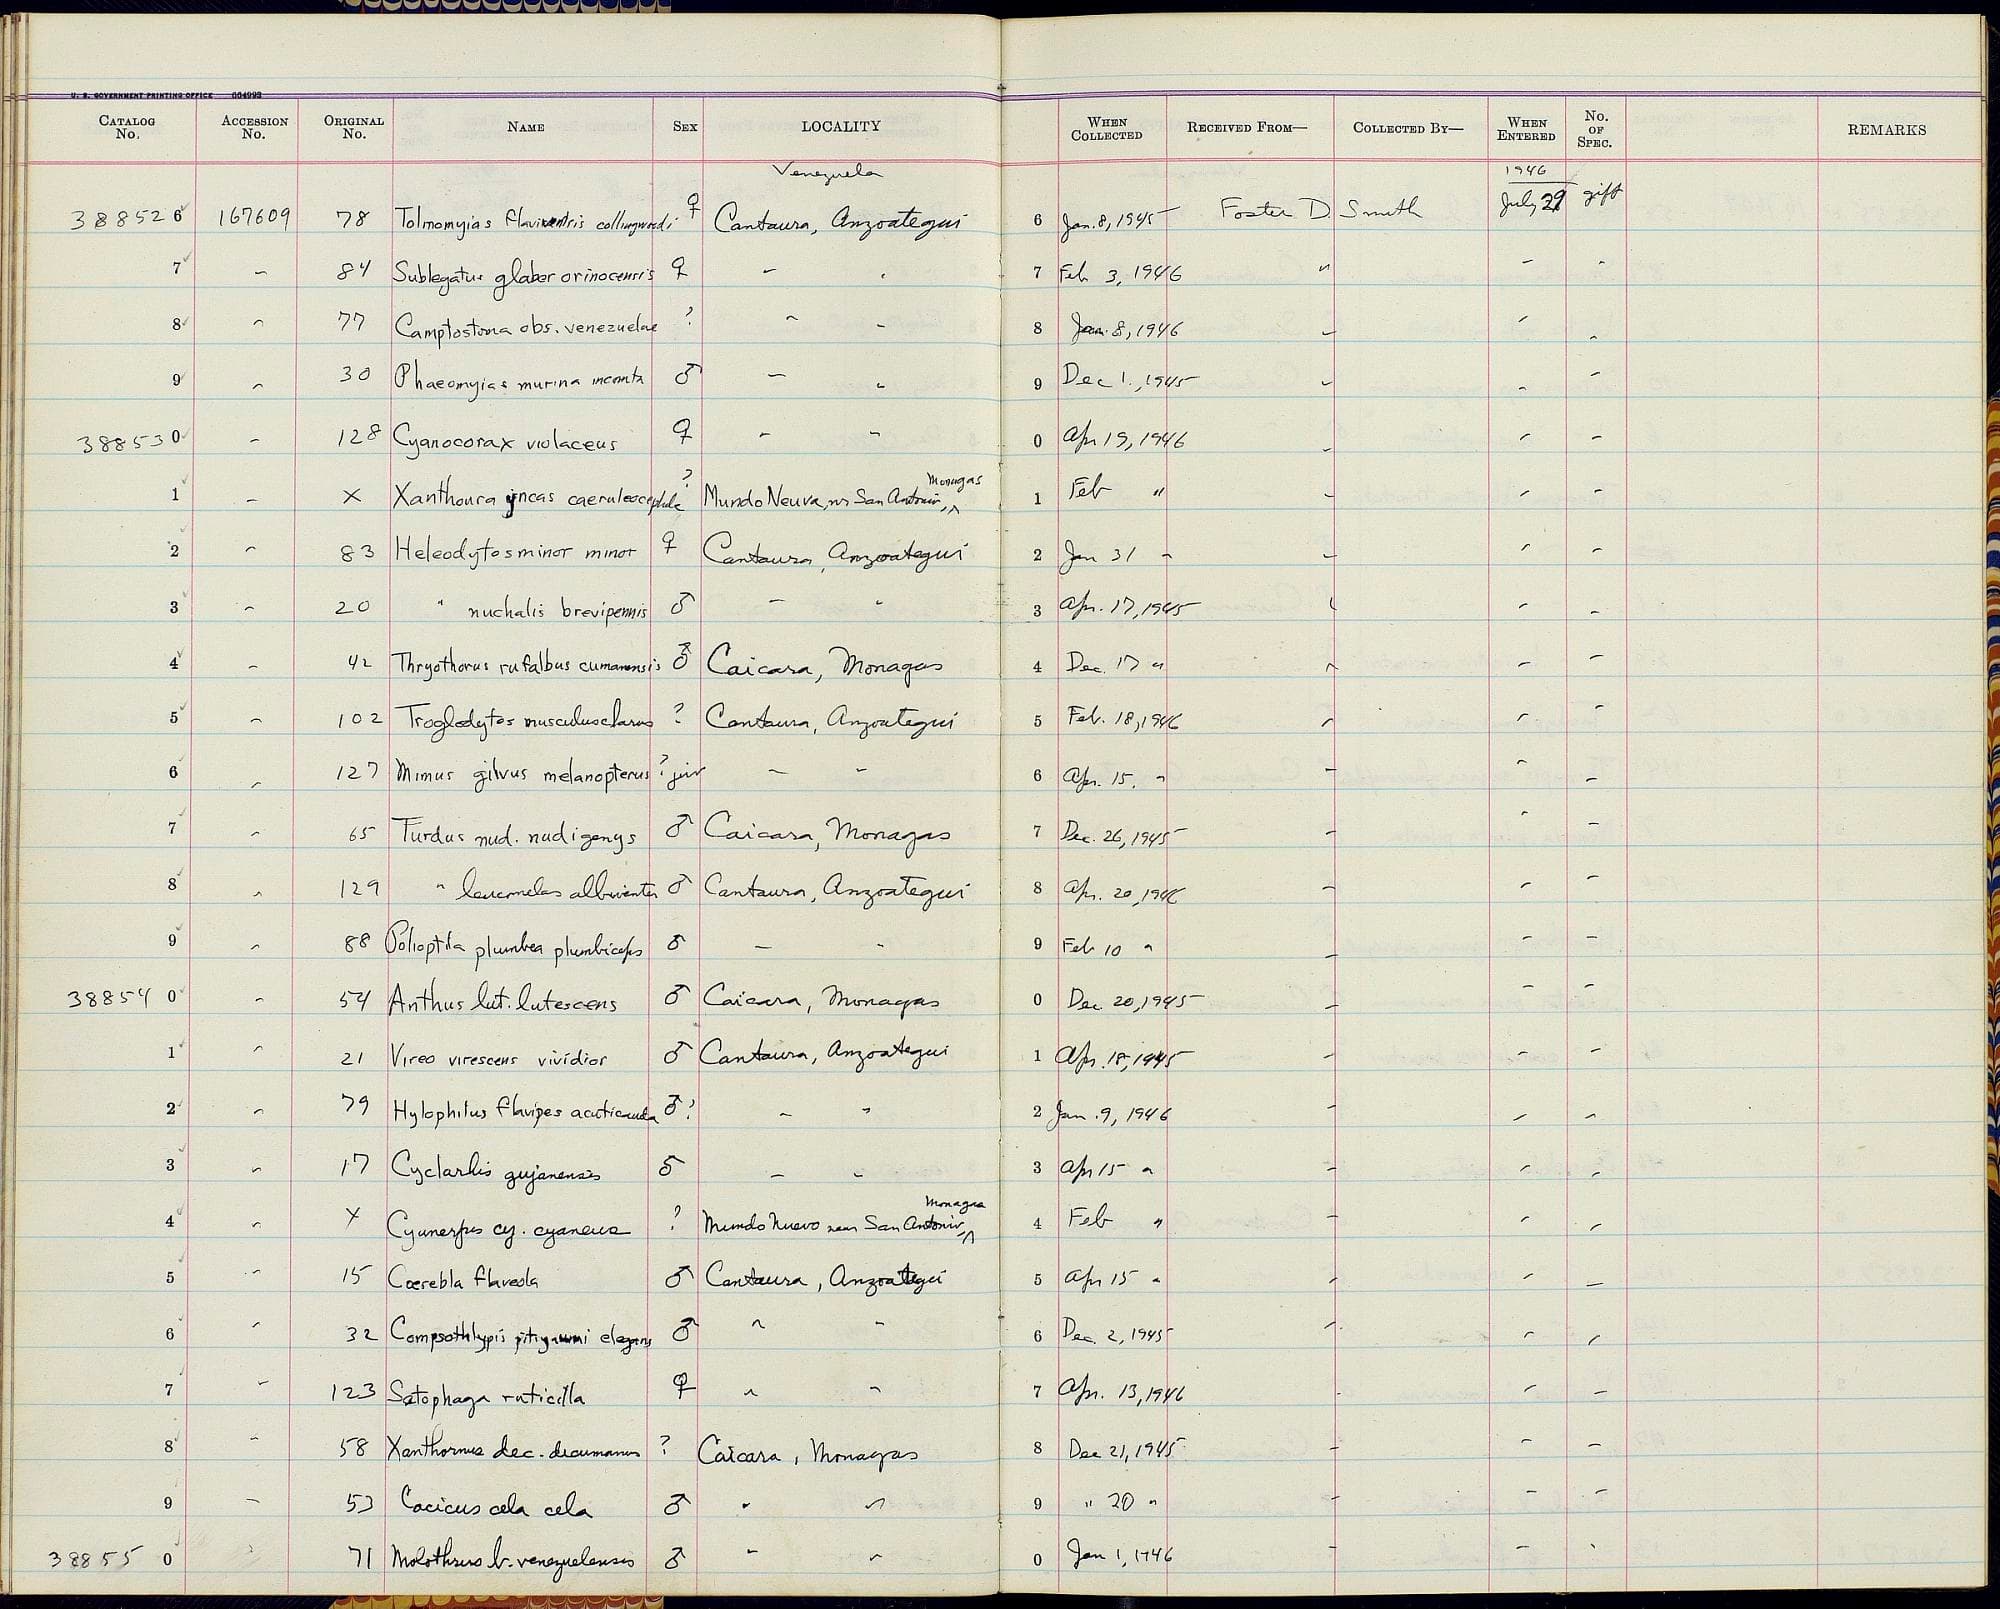 U. S. GOVERNMENT PRINTING OFFICE 664993
CATALOG No. ACCESSION No. ORIGINAL No. NAME SEX LOCALITY WHEN COLLECTED RECEIVED FROM— COLLECTED BY— WHEN ENTERED No. OF SPEC. REMARKS
Venezuela 1946
388526 167609 78 Tolmomyias flaviventris collingwoodi ♀ Cantaura, Anzoategui 6 Jan. 8, 1945 Foster D. Smith July 29 gift
7 " 84 Sublegatus glaber orinocensis ♀ " " 7 Feb 3, 1946 " " "
8 " 77 Camptostoma obs. venezuelae ? " " 8 Jan. 8, 1946 " " "
9 " 30 Phaeomyias murina incomta ♂ " " 9 Dec 1, 1945 " " "
388530 " 128 Cyanocorax violaceus ♀ " " 0 Apr 19, 1946 " " "
1 " X Xanthoura yncas caeruleocephala ? Mundo Neuva, nr San Antonio, Monagas 1 Feb " " " "
2 " 83 Heleodytes minor minor ♀ Cantaura, Anzoategui 2 Jan 31 " " " "
3 " 20 " nuchalis brevipennis ♂ " " 3 Apr. 17, 1945 " " "
4 " 42 Thryothorus rufalbus cumanensis ♂ Caicara, Monagas 4 Dec. 17 " " " "
5 " 102 Troglodytes musculus clarus ? Cantaura, Anzoategui 5 Feb. 18, 1946 " " "
6 " 127 Mimus gilvus melanopterus ? juv " " 6 Apr. 15. " " " "
7 " 65 Turdus nud. nudigenys ♂ Caicara, Monagas 7 Dec. 26, 1945 " " "
8 " 129 " leucomelas albiventer ♂ Cantaura, Anzoategui 8 Apr. 20, 1946 " " "
9 " 88 Polioptila plumbea plumbiceps ♂ " " 9 Feb 10 " " " "
388540 " 54 Anthus lut. lutescens ♂ Caicara, Monagas 0 Dec 20, 1945 " " "
1 " 21 Vireo virescens vividior ♂ Cantaura, Anzoategui 1 Apr. 18, 1945 " " "
2 " 79 Hylophilus flavipes acuticauda ♂? " " 2 Jan. 9, 1946 " " "
3 " 17 Cyclarhis gujanensis ♂ " " 3 Apr 15 " " " "
4 " X Cyanerpes cy. cyaneus ? Mundo Nuevo near San Antonio, Monagas 4 Feb " " " "
5 " 15 Coerebla flaveola ♂ Cantaura, Anzoategui 5 Apr 15 " " " "
6 " 32 Compsothlypis pitiyumi elegans ♂ " " 6 Dec. 2, 1945 " " "
7 " 123 Setophaga ruticilla ♀ " " 7 Apr. 13, 1946 " "
8 " 58 Xanthornus dec. decumanus ? Caicara, Monagas 8 Dec 21, 1945 " " "
9 " 53 Cacicus cela cela ♂ " " 9 " 20 " " " "
388550 " 71 Molothrus b. venezuelensis ♂ " " 0 Jan 1, 1946 " " "